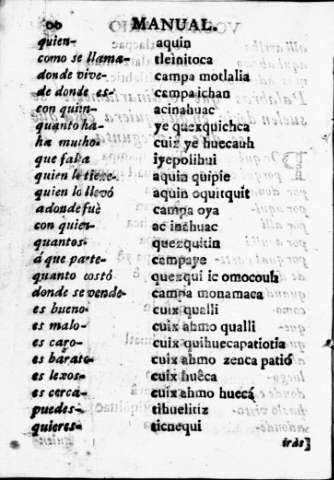 MANUAL.
quien- aquin
como se llama- tleinitoca
donde vive- campa motlalia
de donde es- campa ichan
con quien- acinahuac
quanto ha- ye quexquichca
ha mucho- cuix ye huecauh
que falta iyepolihui
quien le tiene- aquin quipie
quien lo llevó aquin oquitquit
adonde fuè campa oya
con quien- ac inahuac
quantos- quezquitin
à que parte- campaye
quanto costó quezqui ic omocouh
donde se vende- campa monamaca
es bueno- cuix qualli
es malo- cuix ahmo qualli
es caro- cuix quihuecapatiotia
es barato- cuix ahmo zenca patió
es lexos- cuix huêca
es cerca- cuix ahmo huecá
puedes- tihuelitiz
quieres- ticnequi
iràs]